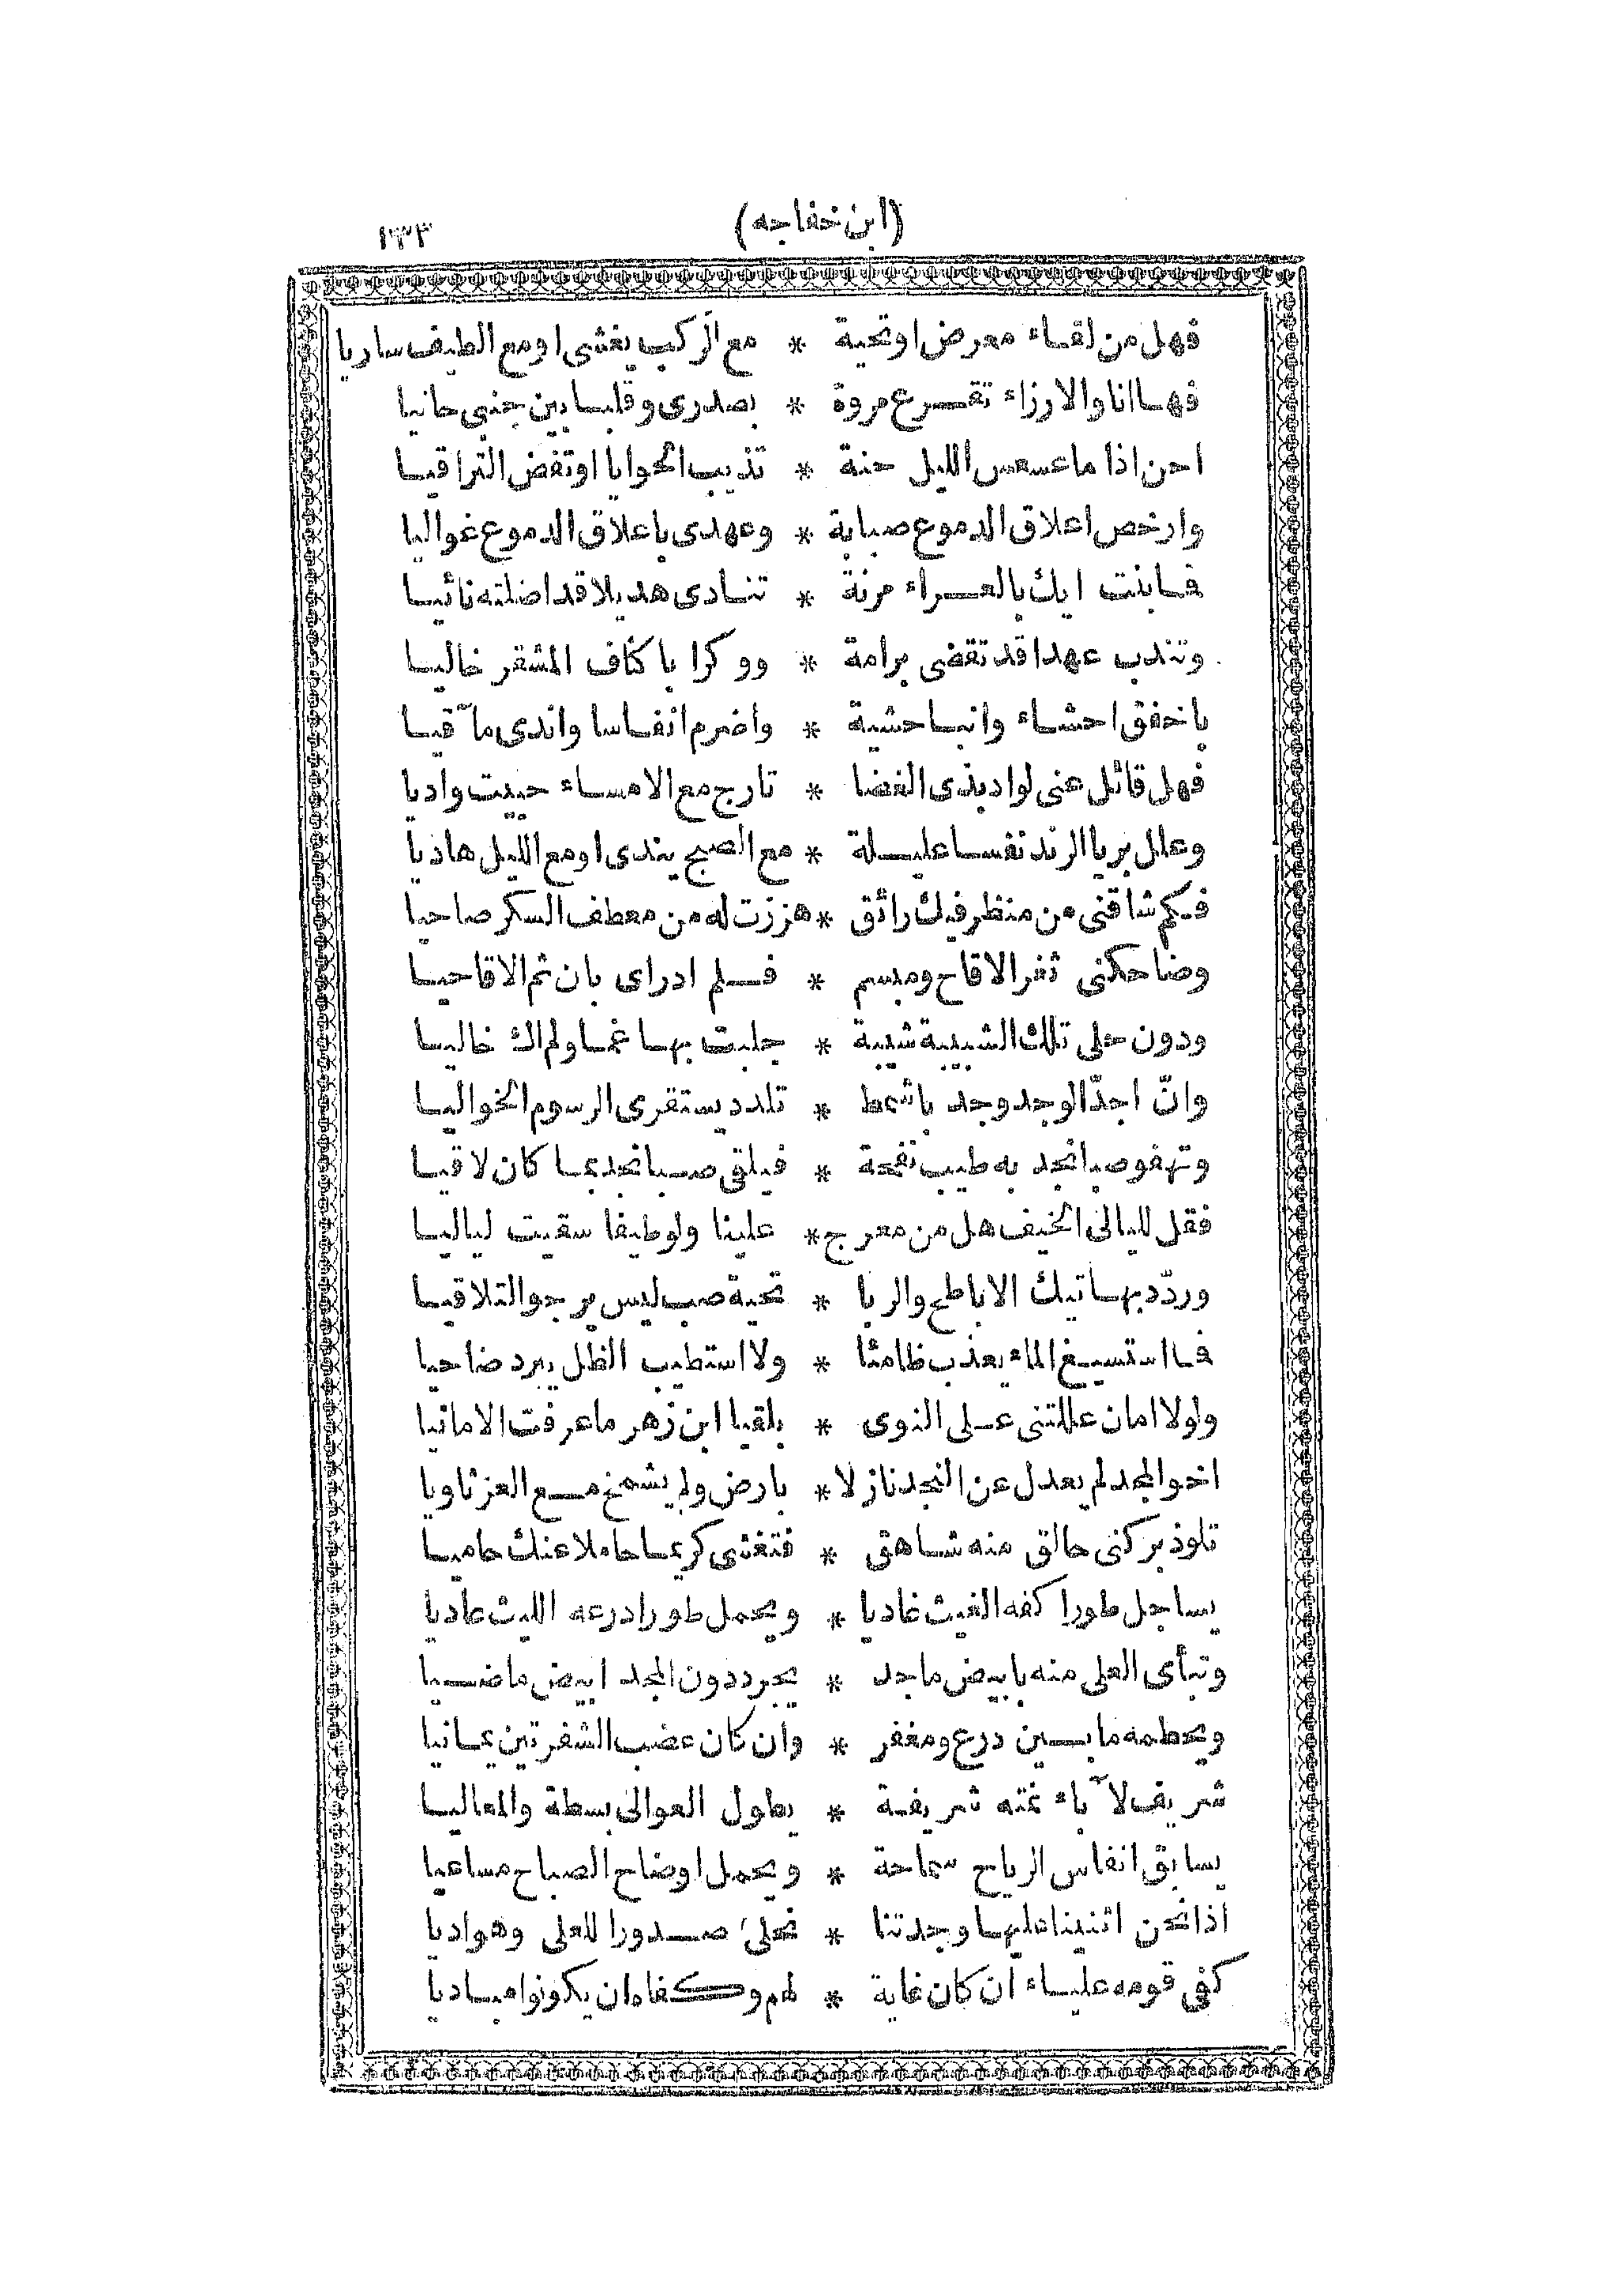 (ابن خفاجه) ١٣٣
فهل من لقاء معرض او تحية * مع الركب يغشى او مع الطيف ساريا
فها انا والارزاء تقرع مروة * بصدرى وقلبا بين جنبى حانيا
احن اذا ما عسعس الليل حنة * تذيب الحوايا او تفض التراقيا
وارخص اعلاق الدموع صبابة * وعهدى باعلاق الدموع غواليا
فما بنت ايك بالعراء مرنة * تنادى هديلا قد اضلته نائيا
وتندب عهدا قد تقضى برامة * ووكرا باكاف المشقر خاليا
باخفق احشاء وانبا حشية * واضرم انفاسا واندى مآقيا
فهل قائل عنى لواد بذى الغضا * تارج مع الامساء حييت واديا
وعلل بريا الرند نفسا عليلة * مع الصبح يندى او مع الليل هاديا
فكم شاقنى من منظر فيك رائق * هززت له من معطف السكر صاحيا
وضاحكنى ثغر الاقاح ومبسم * فلم ادر اى بان ثم الاقاحيا
ودون حلى تلك الشبيبة شيبة * جلبت بها غما ولم اك خاليا
وانّ اجدّ الوجد وجد باشمط * تلدد يستقرى الرسوم الخواليا
وتهفو صبا نجد به طيب نفحة * فيلقى صبا نجد بما كان لاقيا
فقل لليالى الخيف هل من معرج * علينا ولو طيفا سقيت لياليا
وردّد بهاتيك الاباطح والربا * تحية صب ليس يرجو التلاقيا
فما استسيغ الماء يعذب ظامئا * ولا استطيب الظل يبرد ضاحيا
ولولا امان عللتنى على النوى * بلقيا ابن زهر ما عرفت الامانيا
اخو المجد لم يعدل عن النجد نازلا * بارض ولم يشمخ مع العز ثاويا
تلوذ بركنى حالق منه شاهق * فتغشى كريما حاملا عنك حاميا
يساجل طورا كفه الغيث غاديا * ويحمل طورا درعه الليث عاديا
وتبأى العلى منه بابيض ماجد * يجرد دون المجد ابيض ماضيا
ويحطمه ما بين درع ومغفر * وان كان عضب الشفرتين يمانيا
شريف لآباء نمته شريفة * يطول العوالى بسطة والمعاليا
يسابق انفاس الرياح سماحة * ويحمل اوضاح الصباح مساعيا
اذا نحن اثنينا عليها وجدتنا * نحلى صدورا للعلى وهواديا
كفى قومه علياء ان كان غاية * لهم وكفاه ان يكونوا مباديا